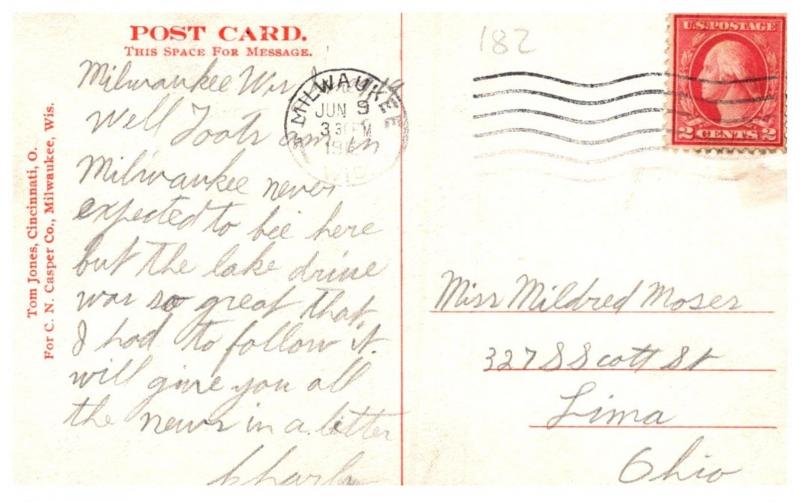 POST CARD.
THIS SPACE FOR MESSAGE.
182
U.S. POSTAGE
2 CENTS 2
MILWAUKEE
JUN 9
3 30 PM
19
WIS
Tom Jones, Cincinnati, O.
For C. N. Casper Co., Milwaukee, Wis.
Milwaukee Wis
Well Toots am in
Milwaukee never
expected to bee here
but the lake drive
was so great that
I had to follow it.
will give you all
the news in a letter
Charly
Miss Mildred Moser
327 S Scott St
Lima
Ohio